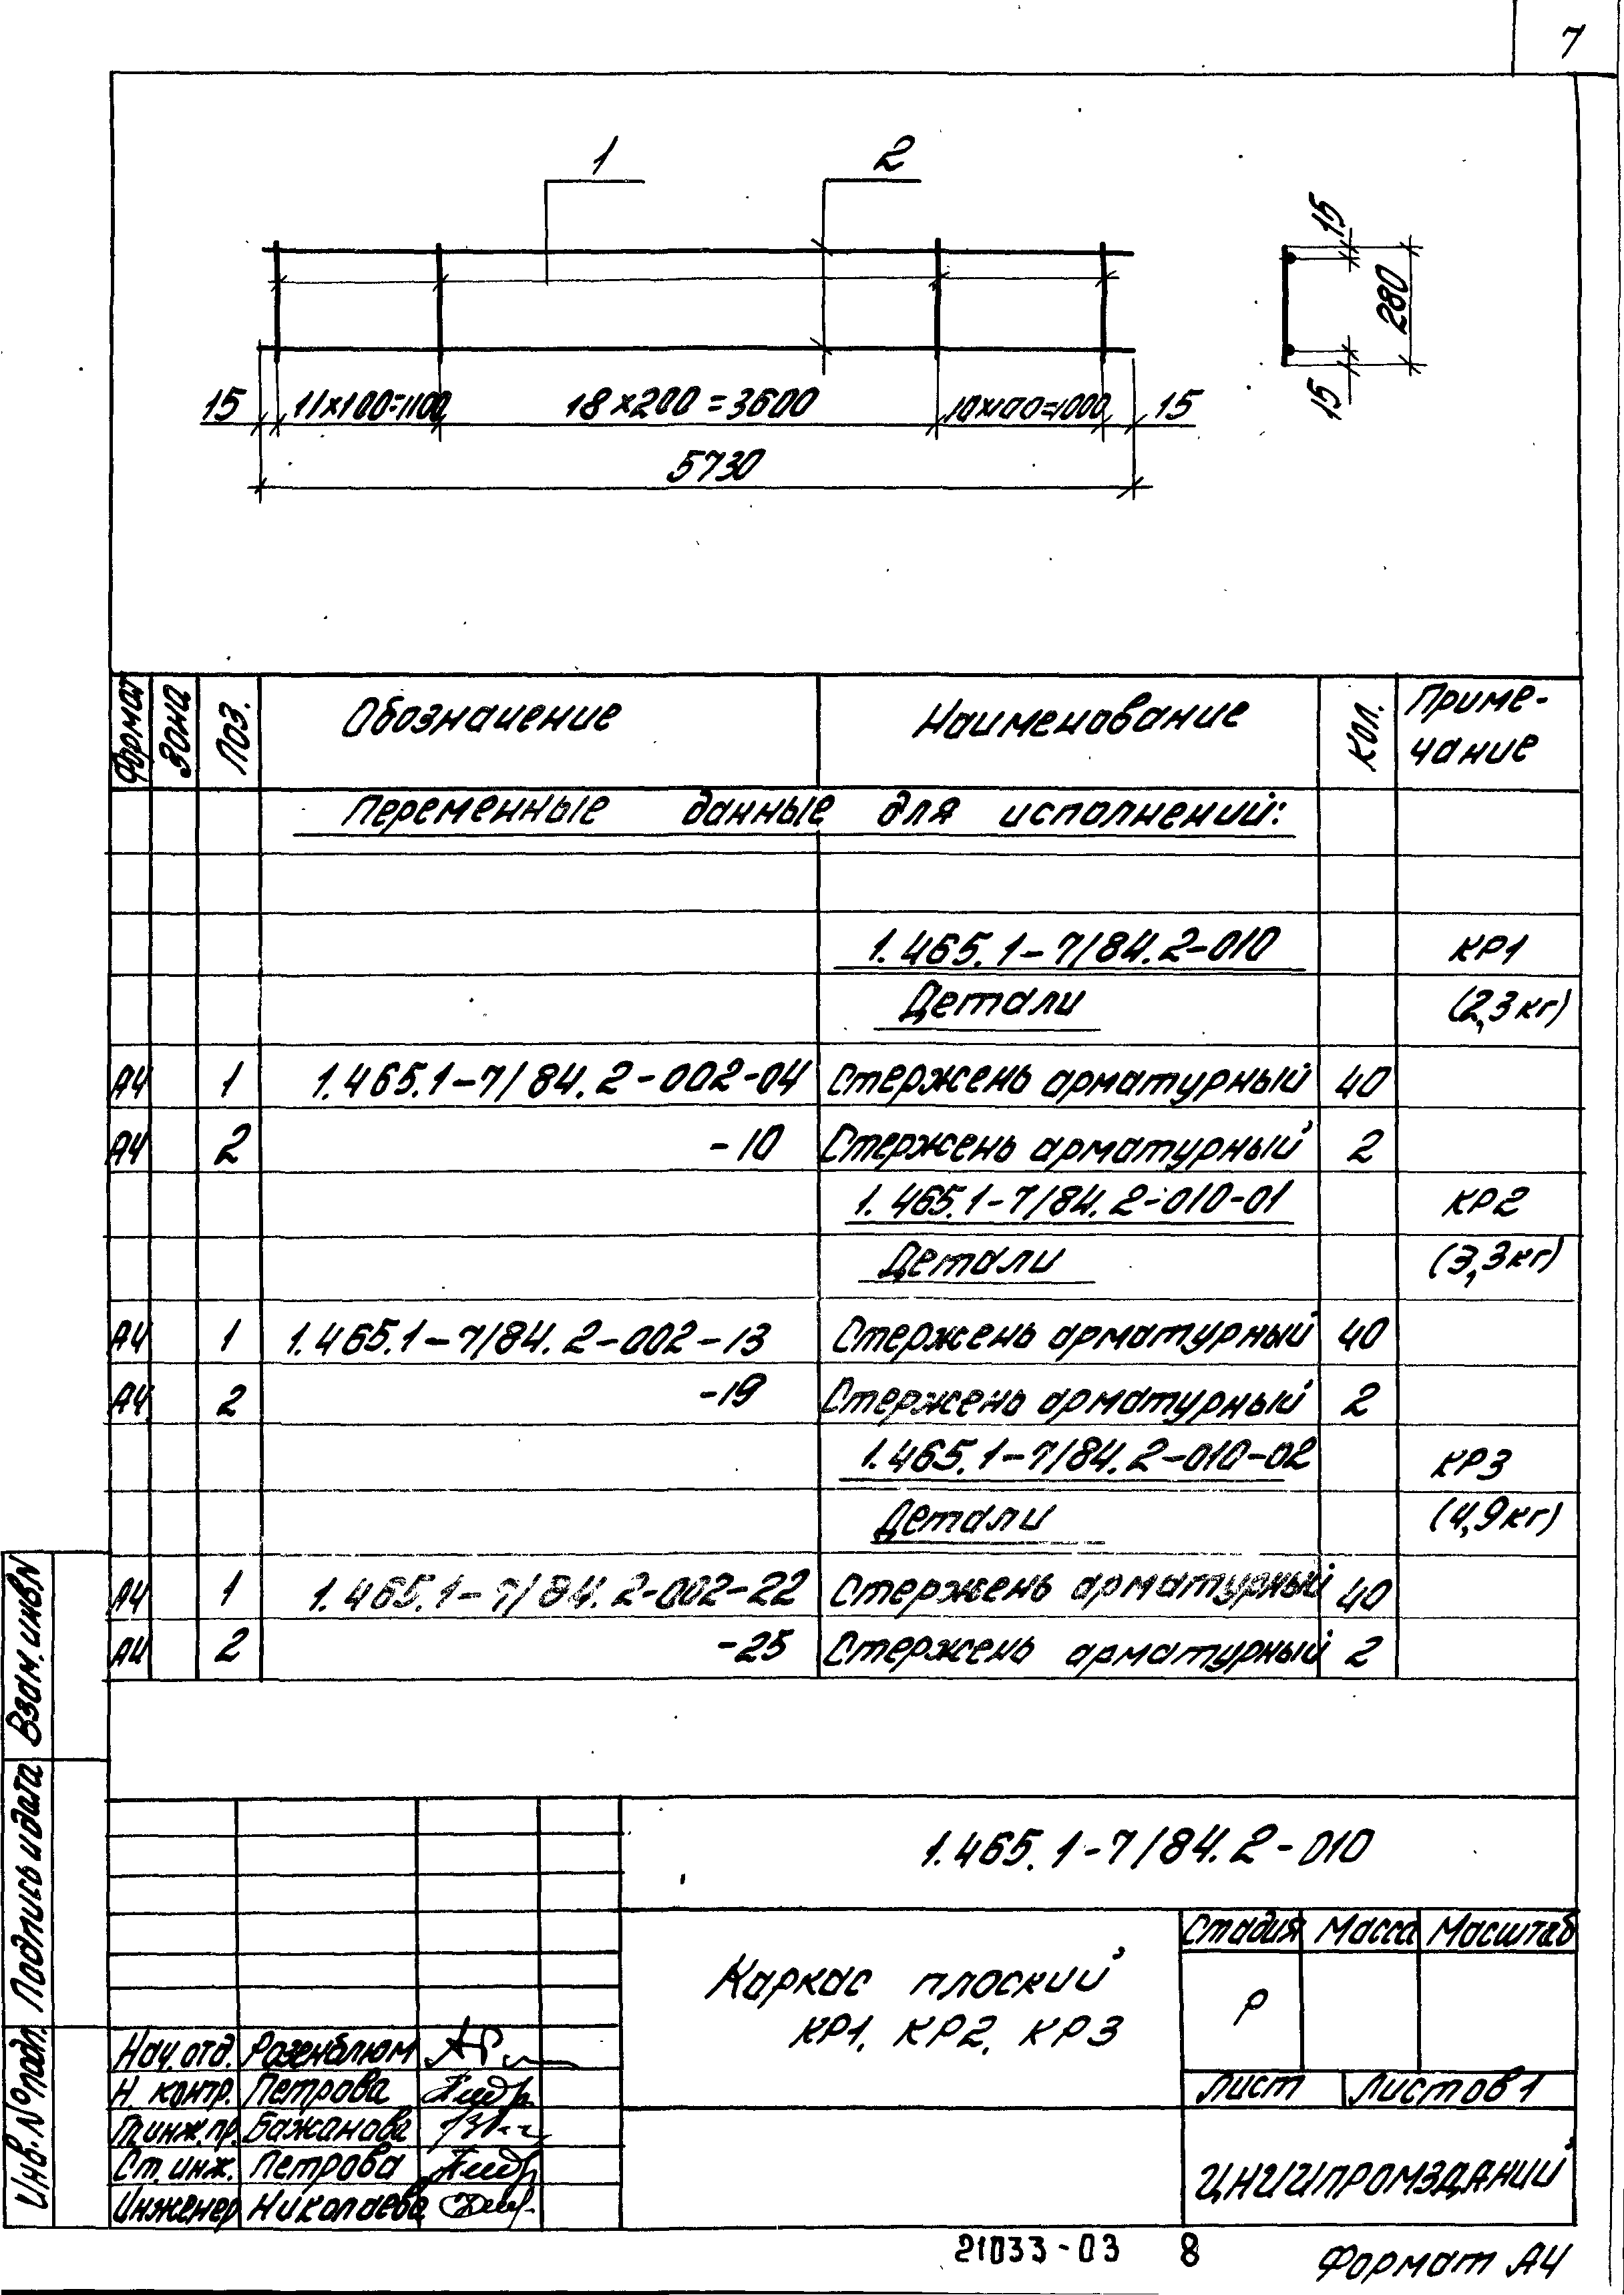 7
1 2
15 11×100=1100 18×200=3600 10×100=1000 15
5730
15
280
15
Формат Зона Поз. Обозначение Наименование Кол. Приме-
чание
Переменные данные для исполнений:
1.465.1-7/84.2-010 КР1
Детали (2,3кг)
А4 1 1.465.1-7/84.2-002-04 Стержень арматурный 40
А4 2 -10 Стержень арматурный 2
1.465.1-7/84.2-010-01 КР2
Детали (3,3кг)
А4 1 1.465.1-7/84.2-002-13 Стержень арматурный 40
А4 2 -19 Стержень арматурный 2
1.465.1-7/84.2-010-02 КР3
Детали (4,9кг)
А4 1 1.465.1-7/84.2-002-22 Стержень арматурный 40
А4 2 -25 Стержень арматурный 2
Взам. инв.N
Подпись и дата
Инв. № подл.
1.465.1-7/84.2-010
Каркас плоский
КР1, КР2, КР3
Стадия Масса Масштаб
Р
Лист Листов 1
ЦНИИПРОМЗДАНИЙ
Нач. отд. Розенблюм
Н. контр. Петрова
Гл.инж.пр. Бажанова
Ст. инж. Петрова
Инженер Николаева
21033-03 8
Формат А4